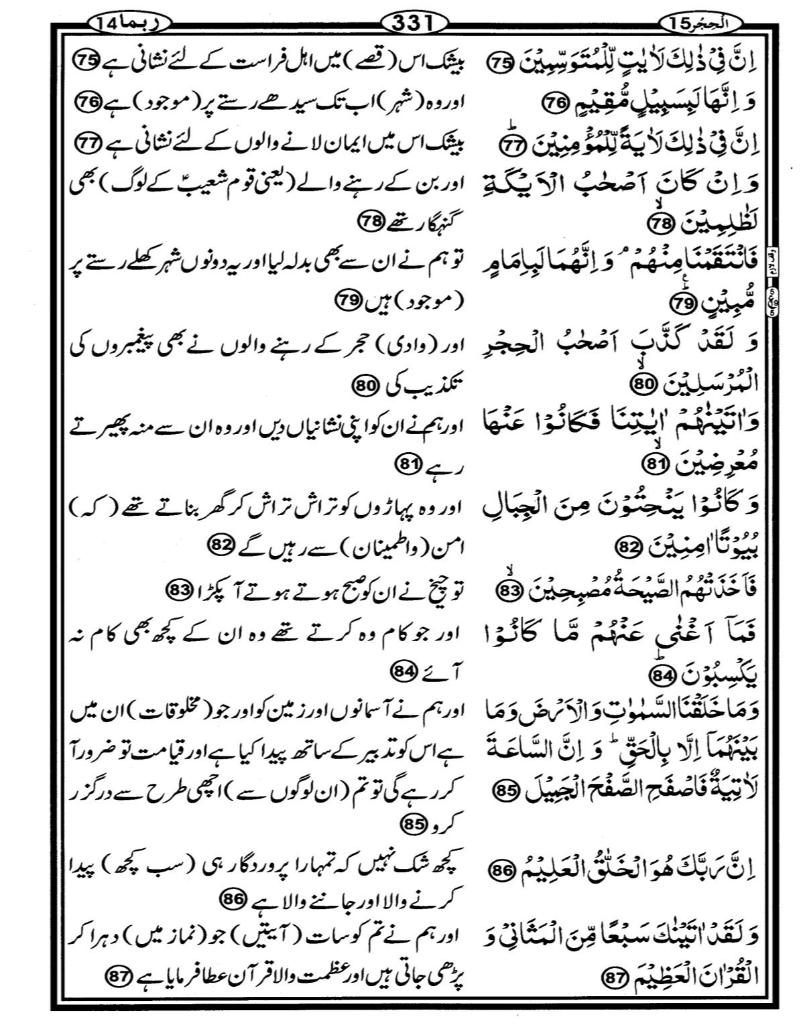 الحجر15 331 ربما14
اِنَّ فِیۡ ذٰلِکَ لَاٰیٰتٍ لِّلۡمُتَوَسِّمِیۡنَ 75 بیشک اس (قصے) میں اہل فراست کے لئے نشانی ہے 75
وَ اِنَّہَا لَبِسَبِیۡلٍ مُّقِیۡمٍ 76 اور وہ (شہر) اب تک سیدھے رستے پر (موجود) ہے 76
اِنَّ فِیۡ ذٰلِکَ لَاٰیَۃً لِّلۡمُؤۡمِنِیۡنَ ؕ 77 بیشک اس میں ایمان لانے والوں کے لئے نشانی ہے 77
وَ اِنۡ کَانَ اَصۡحٰبُ الۡاَیۡکَۃِ اور بن کے رہنے والے (یعنی قوم شعیبؑ کے لوگ) بھی
لَظٰلِمِیۡنَ ۙ 78 گنہگار تھے 78
فَانۡتَقَمۡنَا مِنۡہُمۡ ۘ وَ اِنَّہُمَا لَبِاِمَامٍ تو ہم نے ان سے بھی بدلہ لیا اور یہ دونوں شہر کھلے رستے پر
مُّبِیۡنٍ ؕ 79 (موجود) ہیں 79
وَ لَقَدۡ کَذَّبَ اَصۡحٰبُ الۡحِجۡرِ اور (وادی) حجر کے رہنے والوں نے بھی پیغمبروں کی
الۡمُرۡسَلِیۡنَ ۙ 80 تکذیب کی 80
وَ اٰتَیۡنٰہُمۡ اٰیٰتِنَا فَکَانُوۡا عَنۡہَا اور ہم نے ان کو اپنی نشانیاں دیں اور وہ ان سے منہ پھیرتے
مُعۡرِضِیۡنَ ۙ 81 رہے 81
وَ کَانُوۡا یَنۡحِتُوۡنَ مِنَ الۡجِبَالِ اور وہ پہاڑوں کو تراش تراش کر گھر بناتے تھے (کہ)
بُیُوۡتًا اٰمِنِیۡنَ 82 امن (واطمینان) سے رہیں گے 82
فَاَخَذَتۡہُمُ الصَّیۡحَۃُ مُصۡبِحِیۡنَ ۙ 83 تو چیخ نے ان کو صبح ہوتے ہوتے آ پکڑا 83
فَمَاۤ اَغۡنٰی عَنۡہُمۡ مَّا کَانُوۡا اور جو کام وہ کرتے تھے وہ ان کے کچھ بھی کام نہ
یَکۡسِبُوۡنَ ؕ 84 آئے 84
وَ مَا خَلَقۡنَا السَّمٰوٰتِ وَ الۡاَرۡضَ وَ مَا اور ہم نے آسمانوں اور زمین کو اور جو (مخلوقات) ان میں
بَیۡنَہُمَاۤ اِلَّا بِالۡحَقِّ ؕ وَ اِنَّ السَّاعَۃَ ہے اس کو تدبیر کے ساتھ پیدا کیا ہے اور قیامت تو ضرور آ
لَاٰتِیَۃٌ فَاصۡفَحِ الصَّفۡحَ الۡجَمِیۡلَ 85 کر رہے گی تو تم (ان لوگوں سے) اچھی طرح سے درگزر
کرو 85
اِنَّ رَبَّکَ ہُوَ الۡخَلّٰقُ الۡعَلِیۡمُ 86 کچھ شک نہیں کہ تمہارا پروردگار ہی (سب کچھ) پیدا
کرنے والا اور جاننے والا ہے 86
وَ لَقَدۡ اٰتَیۡنٰکَ سَبۡعًا مِّنَ الۡمَثَانِیۡ وَ اور ہم نے تم کو سات (آیتیں) جو (نماز میں) دہرا کر
الۡقُرۡاٰنَ الۡعَظِیۡمَ 87 پڑھی جاتی ہیں اور عظمت والا قرآن عطا فرمایا ہے 87